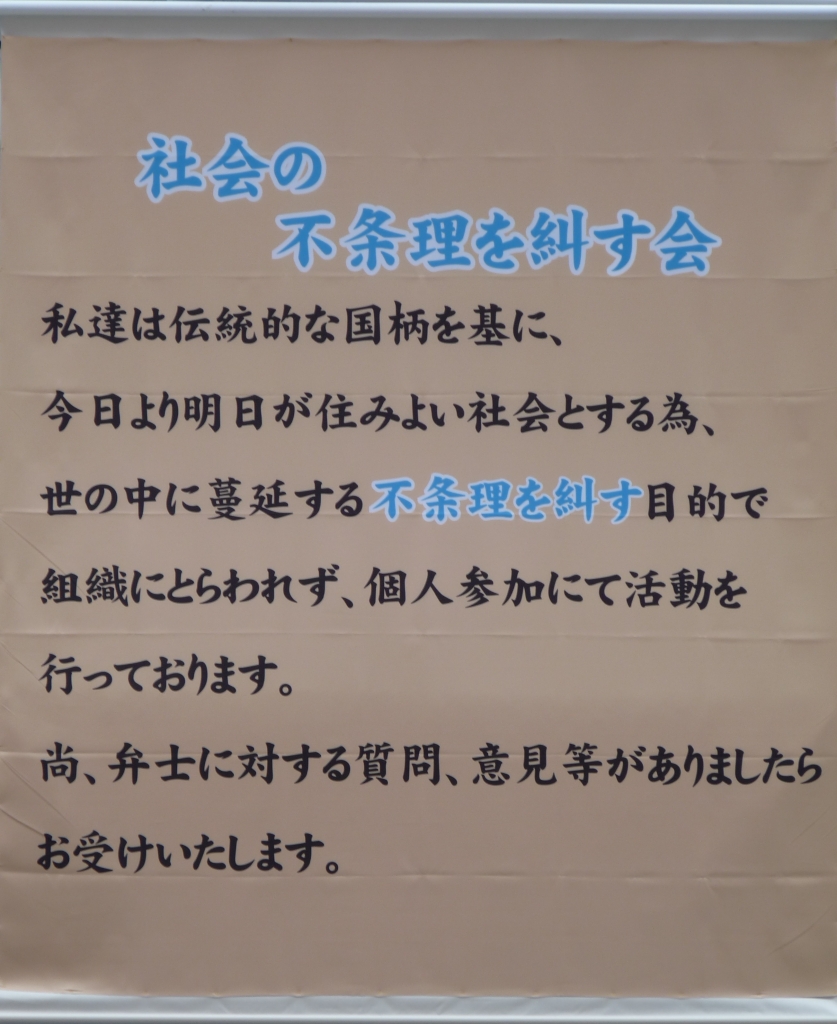 社会の
不条理を糾す会
私達は伝統的な国柄を基に、
今日より明日が住みよい社会とする為、
世の中に蔓延する不条理を糾す目的で
組織にとらわれず、個人参加にて活動を
行っております。
尚、弁士に対する質問、意見等がありましたら
お受けいたします。